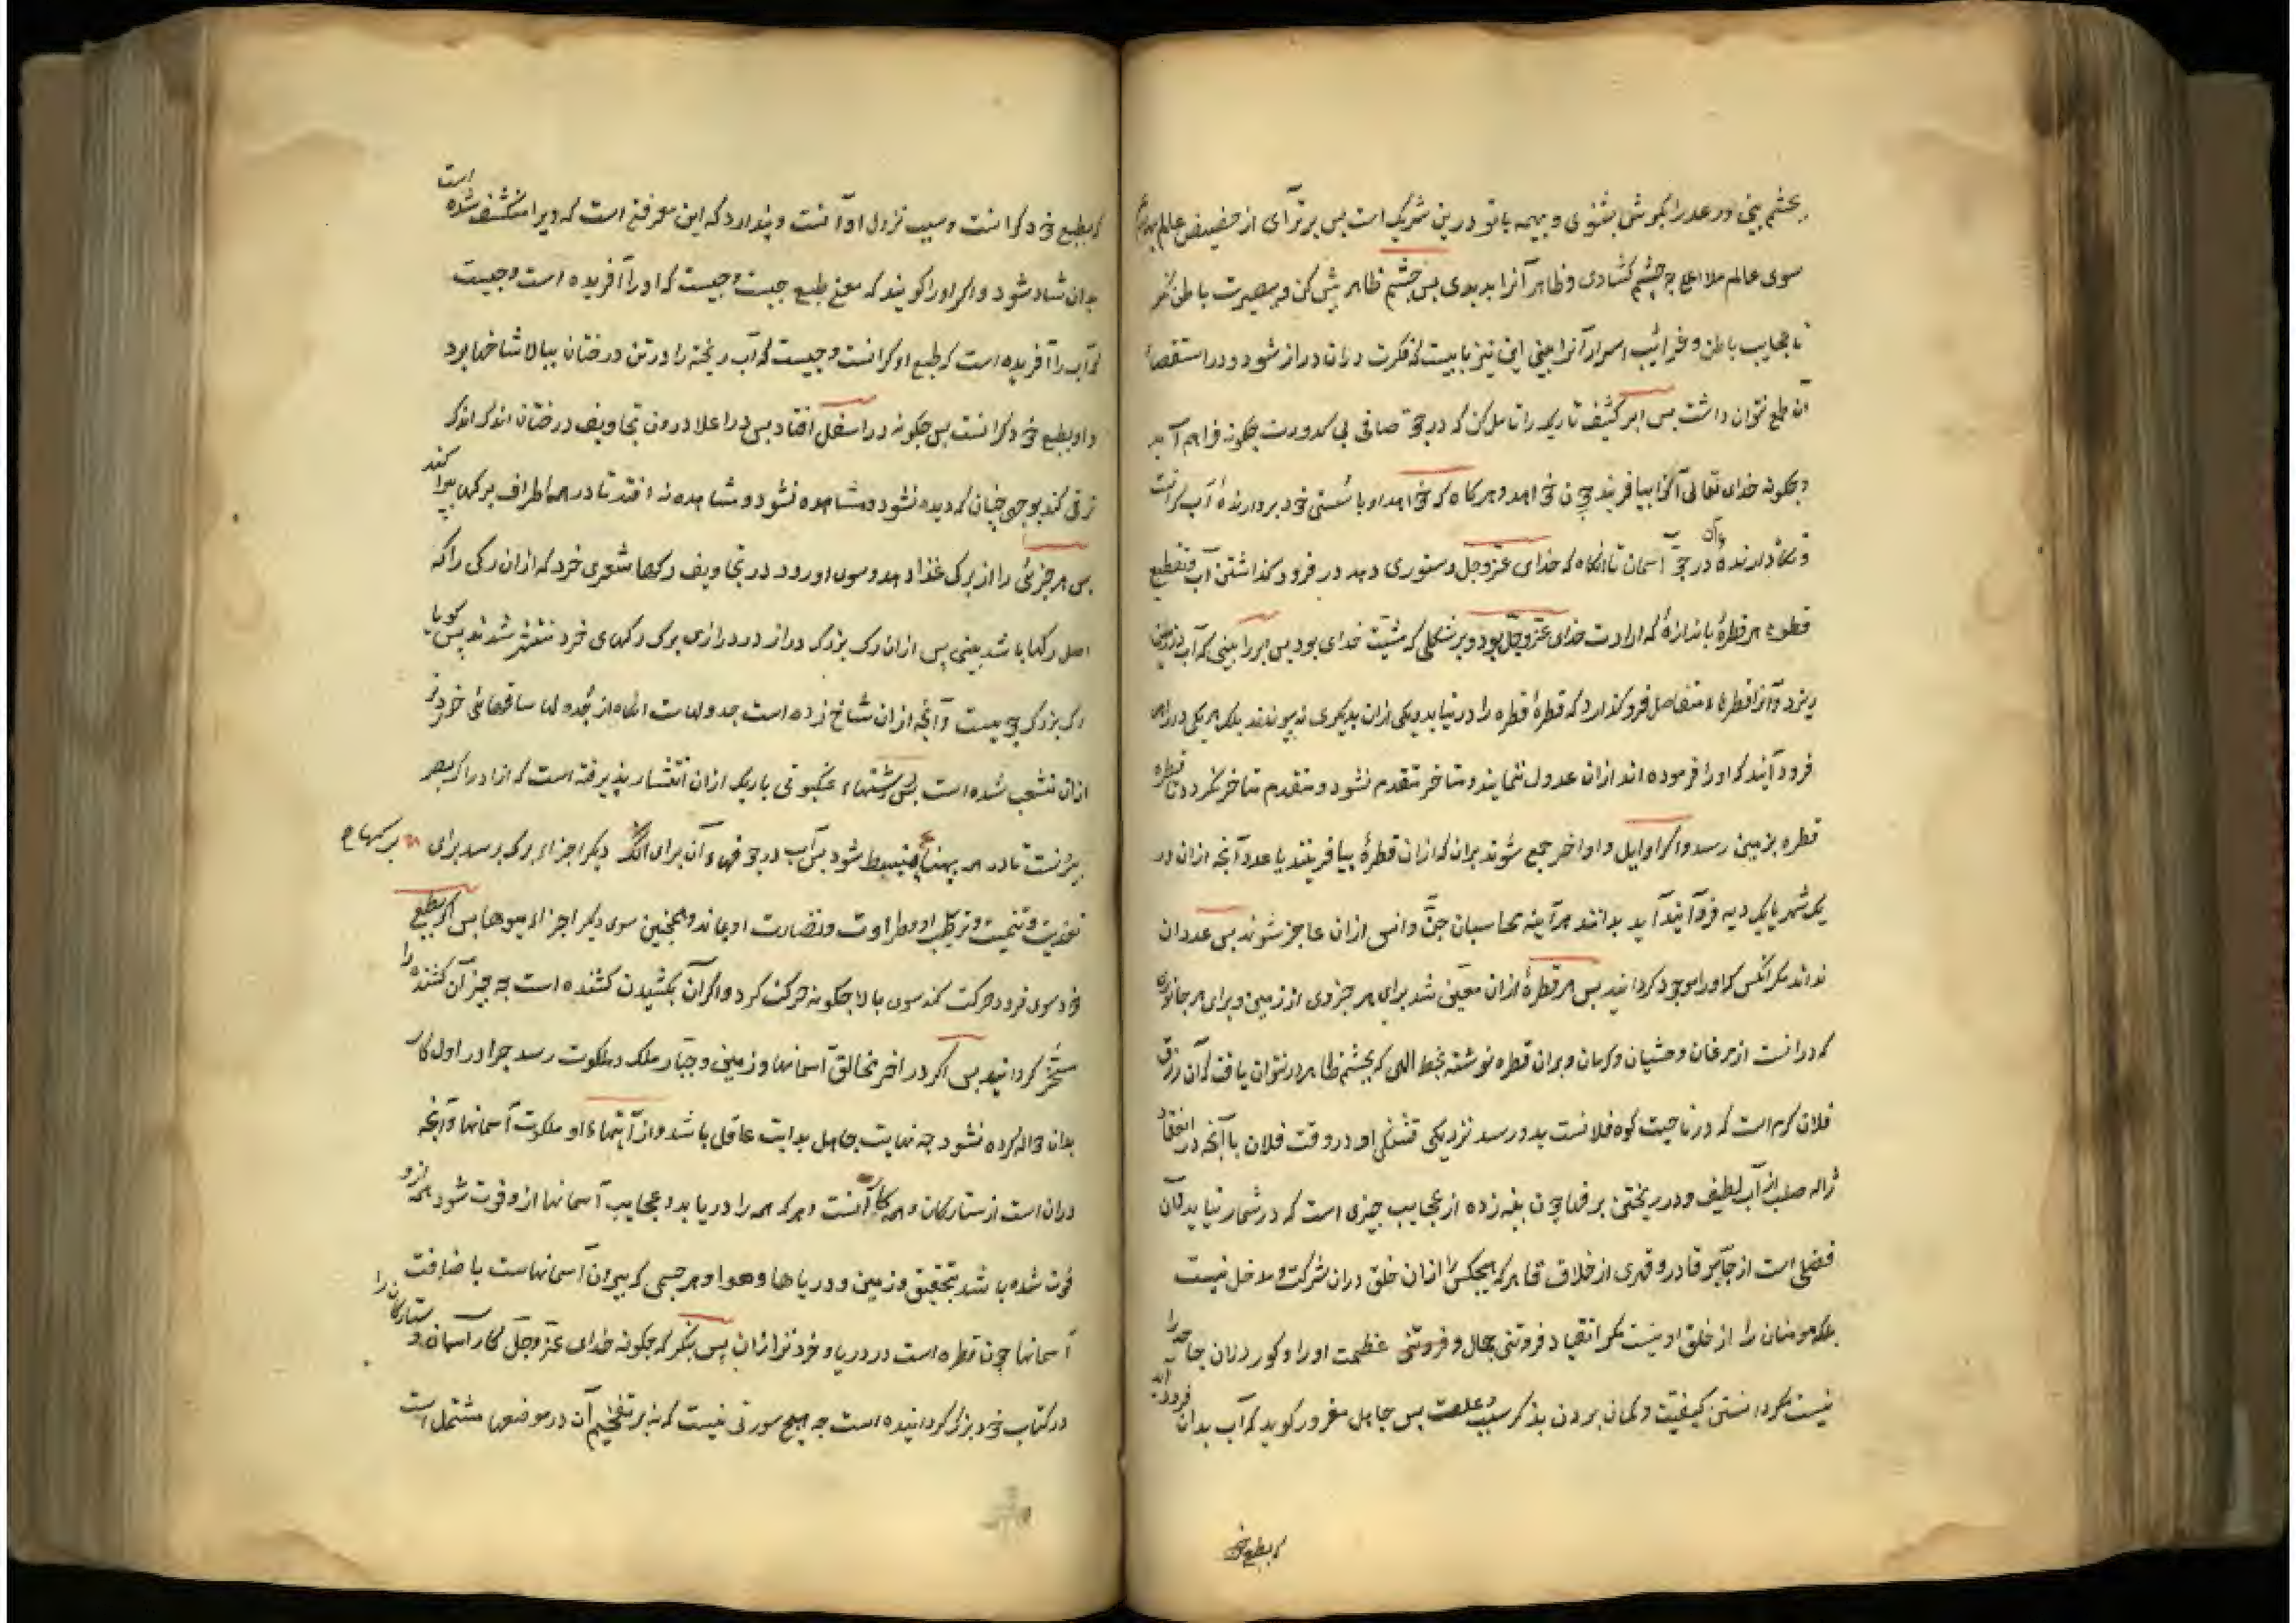 بچشم بینی و رعد را بگوش بشنوی و بهیمه با تو درین شریک است پس برتر آی از حضیض عالم بهایم
سوی عالم ملا اعلی چه چشم کشادی و ظاهر آنرا بدیدی پس چشم ظاهر پیش کن و ببصیرت باطن نکر
تا عجایب باطن و غرائب اسرار آنرا بینی این نیز بابیست که فکرت دران دراز شود و در استقصاء
آن طمع نتوان داشت پس ابر کثیف تاریک را تامل کن که در جو صافی بی کدورت چکونه فراهم آید
و چکونه خدای تعالی آنرا بیافریند چون خواهد و هرکاه که خواهد او با سستی خود بردارندهٔ آب کرانست
و نکاه دارندهٔ آن در جو آسمان تا آنکاه که خدای عزوجل دستوری دهد در فرود کذاشتن آب و تقطیع
قطره هر قطرهٔ باندازهٔ که ارادت خدای عزوجل بود و بر شکلی که مشیت خدای بود پس ابر را بینی که آب بر زمین
ریزد و آنرا قطرهاء متفاصل فرو کذارد که قطرهٔ قطره را در نیابد و یکی ازان بدیکری نپیوندد بلکه هر یکی در راهی
فرود آیند که او را فرموده اند ازان عدول ننمایند و متاخر متقدم نشود و متقدم متاخر نکردد تا قطره
قطره بزمین رسد و اکر اوایل و اواخر جمع شوند بران که ازان قطرهٔ بیافرینند یا عدد آنچه ازان در
یک شهر یا یک دیه فرود آید بدانند هر آینه محاسبان جن و انس ازان عاجز شوند پس عدد ان
نداند مکر آنکس که او را موجود کردانید پس هر قطرهٔ ازان معین شد برای هر جزوی از زمین و برای هر جانوری
که درانست از مرغان و حشیان و کرمان و بران قطره نوشته بخط الهی که بچشم ظاهر در نتوان یافت که آن رزق
فلان کرم است که در ناحیت کوه فلانست بدو رسد نزدیکی تشنکی او در وقت فلان با آنچه در انعقاد
ژاله صلب از آب لطیف و در ریختن برفها چون پنبه زده از عجایب چیزی است که در شمار نیاید و آن
فضلی است از جابر قادر و قهری از خلاق قاهر که هیچکس را ازان خلق دران شرکت و مدخل نیست
بلکه مومنان را از خلق او نیست مکر انقیاد فروتنی بجال و فروتنی عظمت او را و کور دلان جاحد را
نیست مکر دانستن کیفیت و کمان بردن بذکر سبب و علت پس جاهل مغرور کوید که آب بدان فرود آید
که بطبع خود
که بطبع خود کرانست و سبب نزول او آنست و پندارد که این معرفتی است که ویرا منکشف شده است
بدان شاد شود و اکر او را کویند که معنی طبع چیست و چیست که او را آفریده است و چیست
که آب را آفریده است که طبع او کرانست و چیست که آب ریخته را در تن درختان ببالا شاخها برد
و او بطبع خود کرانست پس چکونه در اسفل افتاد پس در اعلا درون تجاویف درختان اندک اندک
ترقی کند بوجهی چنان که دیده نشود و مشاهده نشود و مشاهده نه افتد تا در همه اطراف برکها پیدا کند
پس هر جزئی را از برک غذا دهد و سوی او رود در تجاویف رکها شعری خرد که ازان رکی را که
اصل رکها باشد بینی پس ازان رک بزرک دراز در درازی برک رکهای خرد منتشر شدند پس کویا
رک بزرک جویست و آنچه ازان شاخ زده است جدولهاست آنکاه از جدولها ساقهائی خردتر
ازان منشعب شده است پس رشتهاء عنکبوتی باریک ازان انتشار پذیرفته است که از ادراک بصر
بیرونست تا در همه پهناء منبسط شود پس آب در جوفهاء آن برای آنکه دیکر اجزاء برک برسد برای برکها
تغذیت و تنمیت و ترکیب او و طراوت و نضارت او بماند و همچنین سوی دیکر اجزاء میوها پس اکر بطبع
خود سوی فرود حرکت کند سوی بالا چکونه حرکت کرد و اکر آن بکشیدن کشنده است چه چیز آن کشنده را
مسخر کردانید پس اکر در آخر بخالق آسمانها و زمین و جبار ملک و ملکوت رسد چرا در اول کار
بدان حواله کرده نشود چه نهایت جاهل بدایت عاقل باشد و از آیتهاء او ملکوت آسمانها و آنچه
دران است از ستارکان و همه کار آنست و هر که همه را دریابد و عجایب آسمانها از و فوت شود همه از و
فوت شده باشد بتحقیق و زمین و دریاها و هوا و هر جسمی که بیرون آسمانهاست باضافت
آسمانها چون قطره است در دریا و خردتر ازان پس بنکر که چکونه خدای عزوجل کار آسمان و ستارکان را
در کتاب خود بزرک کردانیده است چه هیچ سورتی نیست که نه بر تفخیم آن در موضعها مشتمل است